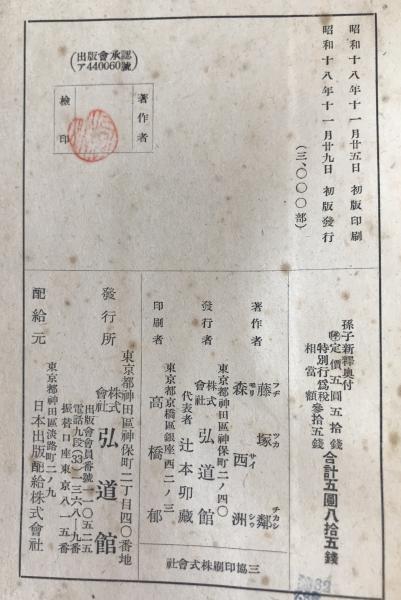 昭和十八年十一月廿五日 初版印刷
昭和十八年十一月廿九日 初版發行
(三、〇〇〇部)
(出版會承認
ア440060號)
著作者
檢印
孫子新釋奧付
定價 五圓五拾錢
特別行爲稅
相當額 參拾五錢
合計五圓八拾五錢
著作者
藤塚鄰
フヂツカチカシ
森西洲
モリサイシウ
發行者
東京都神田區神保町二ノ四〇
株式會社 弘道館
代表者 辻本卯藏
印刷者
東京都京橋區銀座西二ノ三
高橋郁
三協印刷株式會社
發行所
東京都神田區神保町二丁目四〇番地
株式會社 弘道館
出版會會員番號一一〇五二五
電話九段(33)一三六八-九番
振替口座東京八一五番
配給元
東京都神田區淡路町二ノ九
日本出版配給株式會社